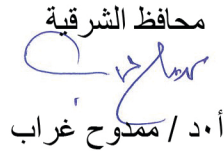 محافظ الشرقية
أ٠د / ممدوح غراب